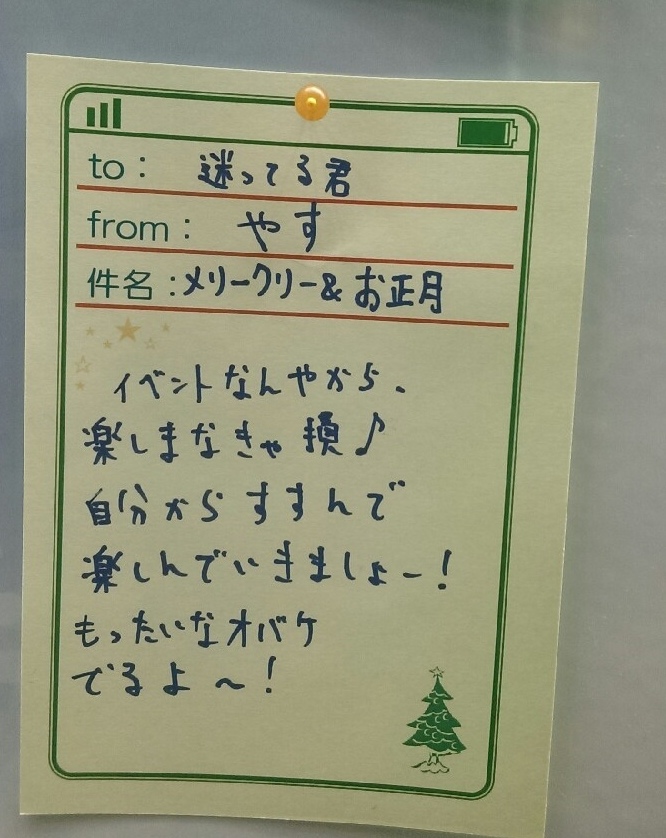 to： 迷ってる君
from： やす
件名：メリークリー＆お正月
イベントなんやから、
楽しまなきゃ損♪
自分からすすんで
楽しんでいきましょー！
もったいなオバケ
でるよ～！